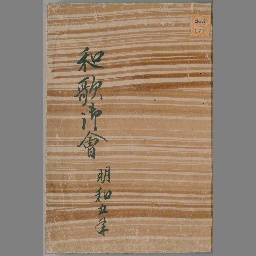 和歌御會
明和五年